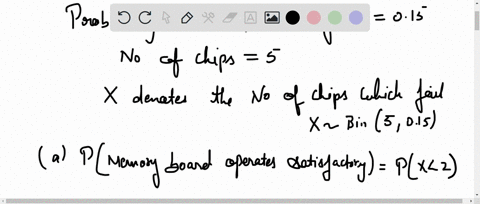 Prob = 0.15
No of chips = 5
X denotes the No of chips which fail
X ~ Bin (5, 0.15)
(a) P(Memory board operates satisfactory) = P(X<2)